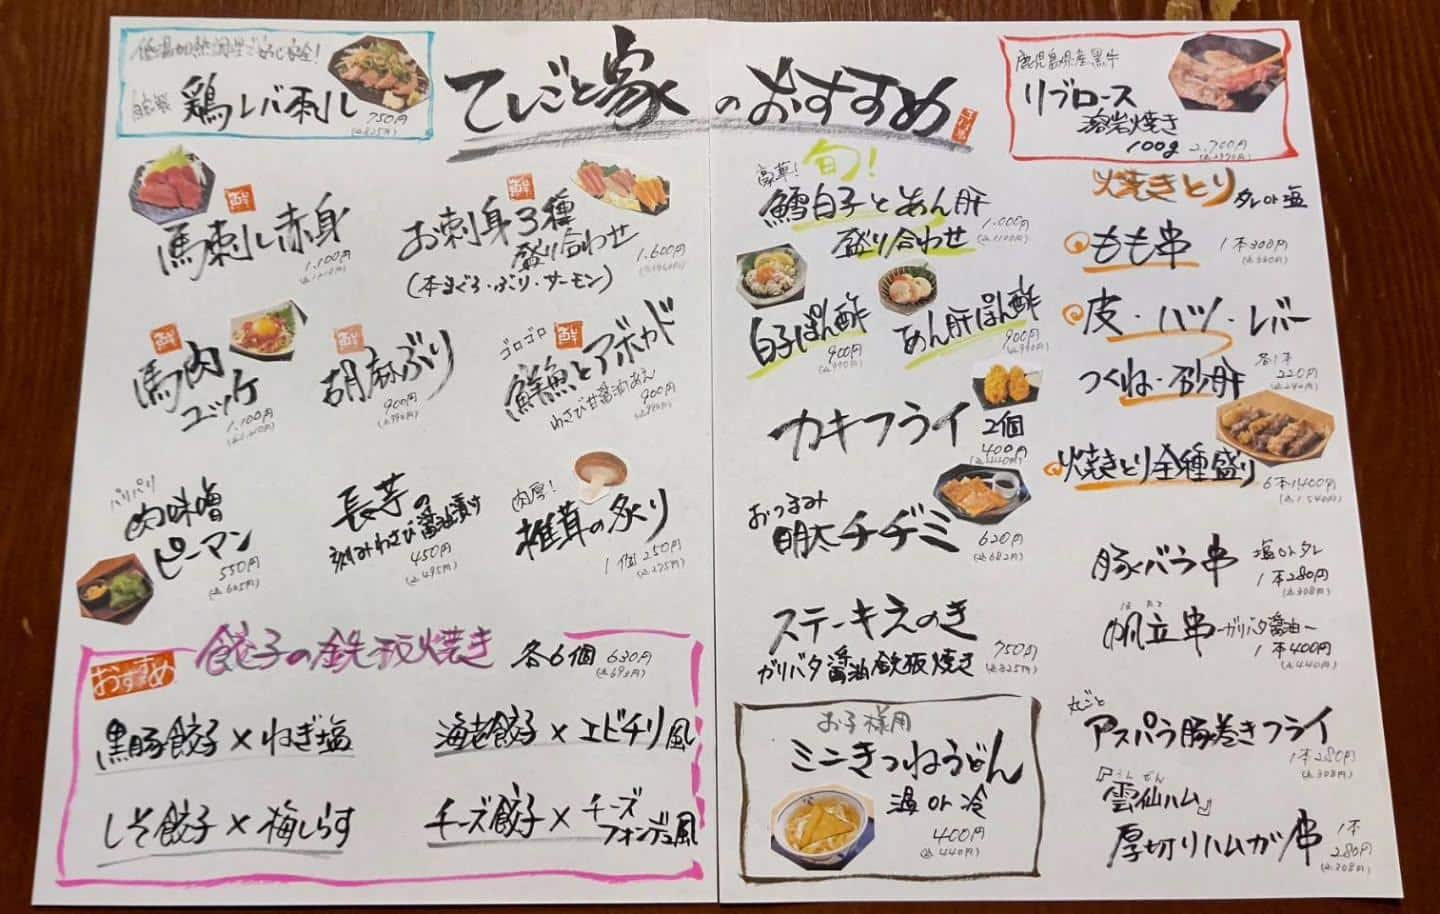 低温加熱調理で安心安全!
鶏レバ刺し
750円
(込825円)
てしごと家のおすすめ
鹿児島県産黒牛
リブロース
溶岩焼き
100g 2,700円
(込2970円)
鮮
馬刺し赤身
1,100円
(込1,210円)
鮮
お刺身3種
盛り合わせ
1,600円
(込1760円)
(本まぐろ・ぶり・サーモン)
鮮
馬肉
ユッケ
1,100円
(込1,210円)
鮮
胡麻ぶり
900円
(込990円)
ゴロゴロ
鮮
鮮魚とアボカド
わさび甘醤油あえ
900円
(込990円)
パリパリ
肉味噌
ピーマン
550円
(込605円)
長芋の
刻みわさび醤油漬け
450円
(込495円)
肉厚!
椎茸の炙り
1個250円
(込275円)
おすすめ
餃子の鉄板焼き 各6個 630円
(込693円)
黒豚餃子×ねぎ塩
海老餃子×エビチリ風
しそ餃子×梅しらす
チーズ餃子×チーズ
フォンデュ風
豪華!
旬!
鱈白子とあん肝
盛り合わせ
1,000円
(込1100円)
白子ぽん酢
900円
(込990円)
あん肝ぽん酢
900円
(込990円)
カキフライ 2個
400円
(込440円)
おつまみ
明太チヂミ 620円
(込682円)
ステーキえのき
ガリバタ醤油鉄板焼き
750円
(込825円)
お子様用
ミニきつねうどん
温or冷
400円
(込440円)
焼きとり タレor塩
もも串 1本300円
(込330円)
皮・ハツ・レバー
つくね・砂肝
各1本
220円
(込242円)
焼きとり全種盛り
6本1,400円
(込1,540円)
豚バラ串 塩orタレ
1本280円
(込308円)
ほたて
帆立串 -ガリバタ醤油-
1本400円
(込440円)
丸ごと
アスパラ豚巻きフライ
1本280円
(込308円)
うんぜん
『雲仙ハム』
厚切りハムカツ串
1本
280円
(込308円)